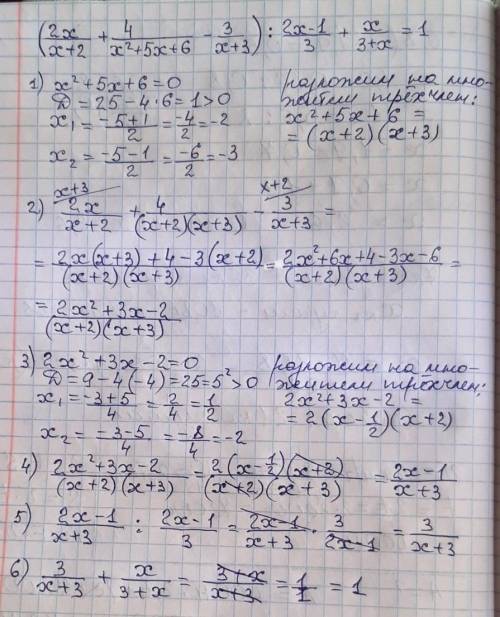 (2x/(x+2) + 4/(x²+5x+6) - 3/(x+3)) : (2x-1)/3 + x/(3+x) = 1
1) x²+5x+6=0
D = 25-4·6=1>0
x₁ = (-5+1)/2 = -4/2 = -2
x₂ = (-5-1)/2 = -6/2 = -3
разложим на мно-
жители трёхчлен:
x²+5x+6 =
= (x+2)(x+3)
2) x+3/ 2x/(x+2) + 4/((x+2)(x+3)) - x+2/ 3/(x+3) =
= (2x(x+3)+4-3(x+2))/((x+2)(x+3)) = (2x²+6x+4-3x-6)/((x+2)(x+3)) =
= (2x²+3x-2)/((x+2)(x+3))
3) 2x²+3x-2=0
D = 9-4(-4)=25=5²>0
x₁ = (-3+5)/4 = 2/4 = 1/2
x₂ = (-3-5)/4 = -8/4 = -2
разложим на мно-
жители трёхчлен:
2x²+3x-2 =
= 2(x-1/2)(x+2)
4) (2x²+3x-2)/((x+2)(x+3)) = 2(x-1/2)(x+2)/((x+2)(x+3)) = (2x-1)/(x+3)
5) (2x-1)/(x+3) : (2x-1)/3 = (2x-1)/(x+3) · 3/(2x-1) = 3/(x+3)
6) 3/(x+3) + x/(3+x) = (3+x)/(x+3) = 1/1 = 1